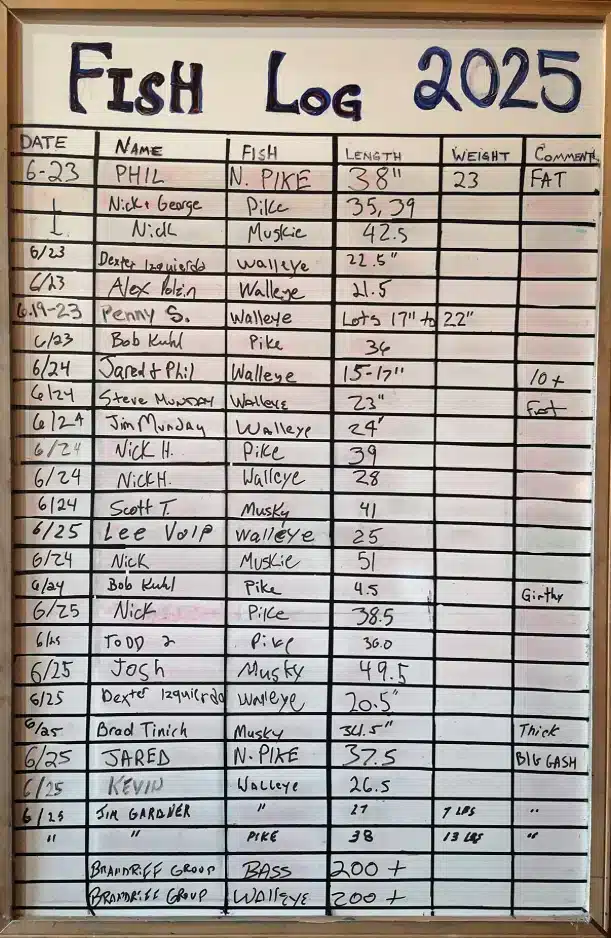 FISH LOG 2025
DATE NAME FISH LENGTH WEIGHT COMMENT
6-23 PHIL N. PIKE 38" 23 FAT
↓ Nick + George Pike 35, 39
Nick Muskie 42.5
6/23 Dexter Izquierdo Walleye 22.5"
6/23 Alex Walleye 21.5
6.19-23 Penny S. Walleye Lots 17" to 22"
6/23 Bob Kuhl Pike 36
6/24 Jared & Phil Walleye 15-17" 10+
6/24 Steve MUNDAY Walleye 23" Fast
6/24 Jim Munday Walleye 24'
6/24 Nick H. Pike 39
6/24 NICK H. Walleye 28
6/24 Scott T. Musky 41
6/25 Lee Volp Walleye 25
6/24 Nick Muskie 51
6/24 Bob Kuhl Pike 4.5 Girthy
6/25 Nick Pike 38.5
6/25 TODD 2 Pike 36.0
6/25 Josh Musky 49.5
6/25 Dexter Izquierdo Walleye 20.5"
6/25 Brad Tinich Musky 34.5" Thick
6/25 JARED N. PIKE 37.5 BIG GASH
6/25 KEVIN Walleye 26.5
6/25 JIM GARDNER " 27 7 LBS "
" " PIKE 38 13 LBS "
BRANDRIFF GROUP BASS 200 +
BRANDRIFF GROUP WALLEYE 200 +